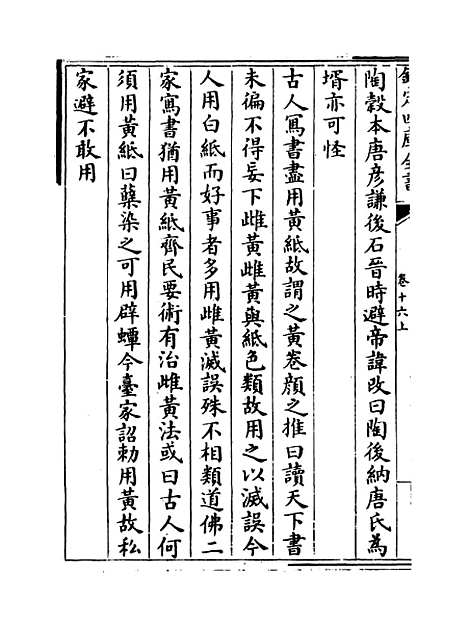 欽定四庫全書
卷十六上
陶穀本唐彦謙後石晉時避帝諱改曰陶後納唐氏為
壻亦可怪
古人寫書盡用黃紙故謂之黃卷顔之推曰讀天下書
未徧不得妄下雌黃雌黃與紙色類故用之以滅誤今
人用白紙而好事者多用雌黃滅誤殊不相類道佛二
家寫書猶用黃紙齊民要術有治雌黃法或曰古人何
須用黃紙曰蘗染之可用辟蟫今臺家詔勅用黃故私
家避不敢用